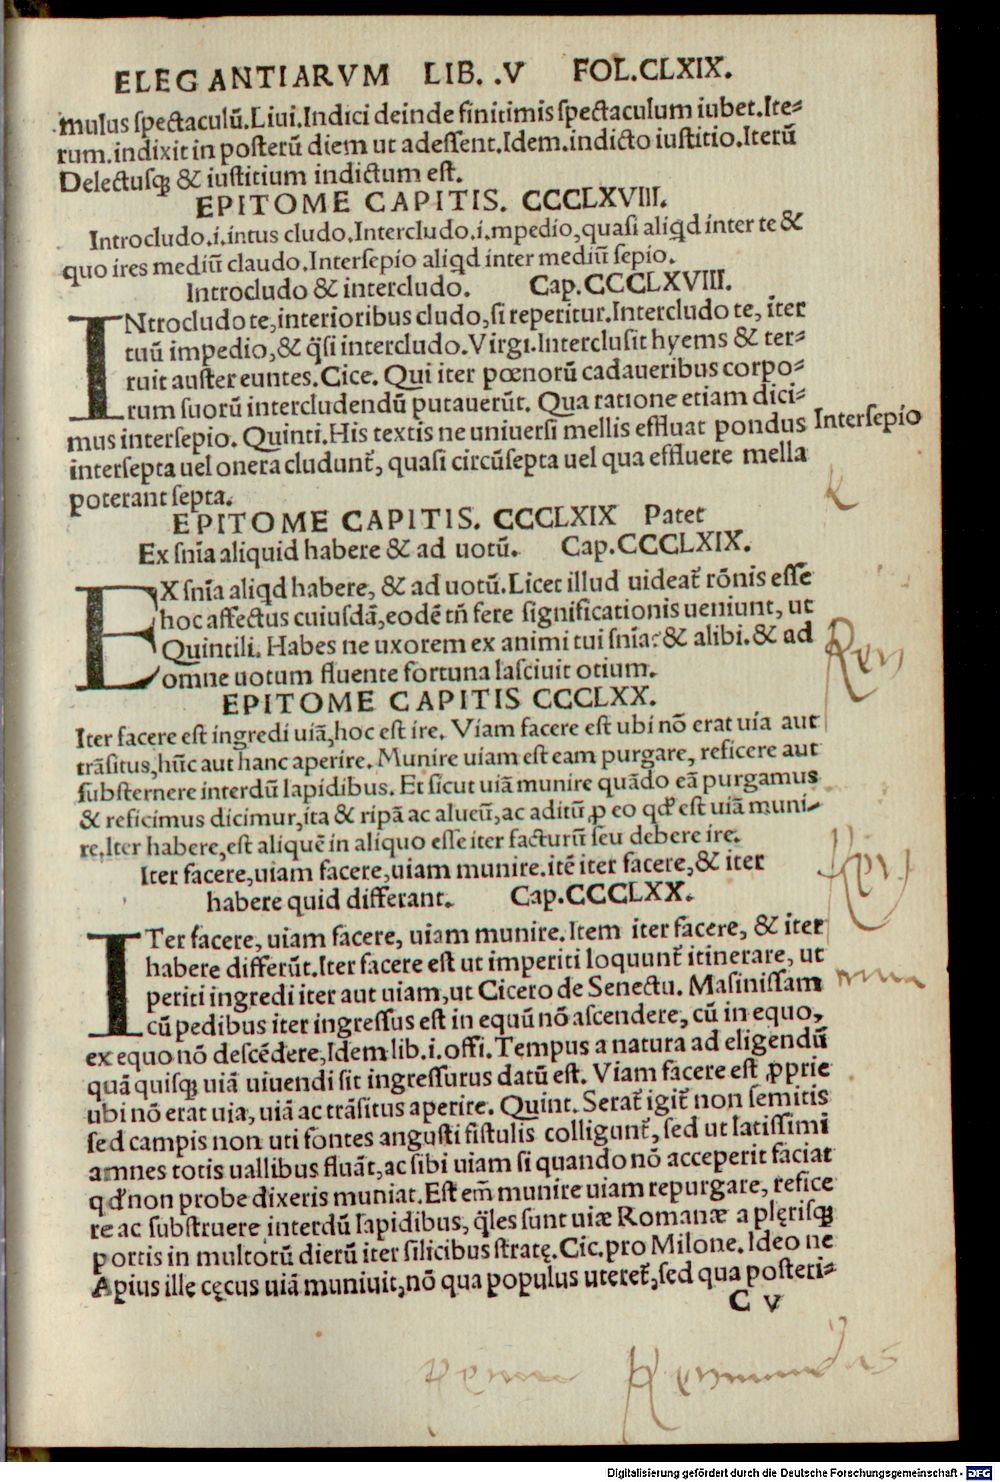 ELEGANTIARVM LIB. .V FOL.CLXIX.
mulus spectaculū.Liui.Indici deinde finitimis spectaculum iubet.Ite-
rum.indixit in posterū diem ut adessent.Idem.indicto iustitio.Iterū
Delectusqꝫ & iustitium indictum est.
EPITOME CAPITIS. CCCLXVIII.
Introcludo.i.intus cludo.Intercludo.i.mpedio,quasi aliqd inter te &
quo ires mediū claudo.Intersepio aliqd inter mediū sepio.
Introcludo & intercludo. Cap.CCCLXVIII.
INtrocludo te,interioribus cludo,si reperitur.Intercludo te, iter
tuū impedio,& q̄si intercludo.Virgi.Interclusit hyems & ter-
ruit auster euntes.Cice. Qui iter pœnorū cadaueribus corpo-
rum suorū intercludendū putauerūt. Qua ratione etiam dici-
mus intersepio. Quinti.His textis ne uniuersi mellis effluat pondus
Intersepio
intersepta uel onera cludunt̄, quasi circūsepta uel qua effluere mella
poterant septa.
EPITOME CAPITIS. CCCLXIX Patet
Ex snīa aliquid habere & ad uotū. Cap.CCCLXIX.
EX snīa aliqd habere, & ad uotū.Licet illud uideat̄ rōnis esse
hoc affectus cuiusdā,eodē tn̄ fere significationis ueniunt, ut
Quintili. Habes ne uxorem ex animi tui snīa: & alibi. & ad
omne uotum fluente fortuna lasciuit otium.
EPITOME CAPITIS CCCLXX.
Iter facere est ingredi uiā,hoc est ire. Viam facere est ubi nō erat uia aut
trāsitus,hūc aut hanc aperire. Munire uiam est eam purgare, reficere aut
substernere interdū lapidibus. Et sicut uiā munire quādo eā purgamus
& reficimus dicimur,ita & ripā ac alueū,ac aditū,ꝓ eo qd̄ est uiā muni-
re.Iter habere,est aliquē in aliquo esse iter facturū seu debere ire.
Iter facere,uiam facere,uiam munire.itē iter facere,& iter
habere quid differant. Cap.CCCLXX.
ITer facere, uiam facere, uiam munire.Item iter facere, & iter
habere differūt.Iter facere est ut imperiti loquunt̄ itinerare, ut
periti ingredi iter aut uiam,ut Cicero de Senectu. Masinissam
cū pedibus iter ingressus est in equū nō ascendere, cū in equo,
ex equo nō descēdere,Idem lib.i.offi.Tempus a natura ad eligendū
quā quisqꝫ uiā uiuendi sit ingressurus datū est. Viam facere est ꝓprie
ubi nō erat uia, uiā ac trāsitus aperire. Quint. Serat̄ igit̄ non semitis
sed campis non uti fontes angusti fistulis colligunt̄, sed ut latissimi
amnes totis uallibus fluāt,ac sibi uiam si quando nō acceperit faciat
qd̄ non probe dixeris muniat.Est em̄ munire uiam repurgare, refice
re ac substruere interdū lapidibus, q̄les sunt uiæ Romanæ a plęrisqꝫ
portis in multorū dierū iter silicibus stratę.Cic.pro Milone.Ideo ne
Apius ille cęcus uiā muniuit,nō qua populus uteret̄,sed qua posteri-
C v
Digitalisierung gefördert durch die Deutsche Forschungsgemeinschaft - DFG